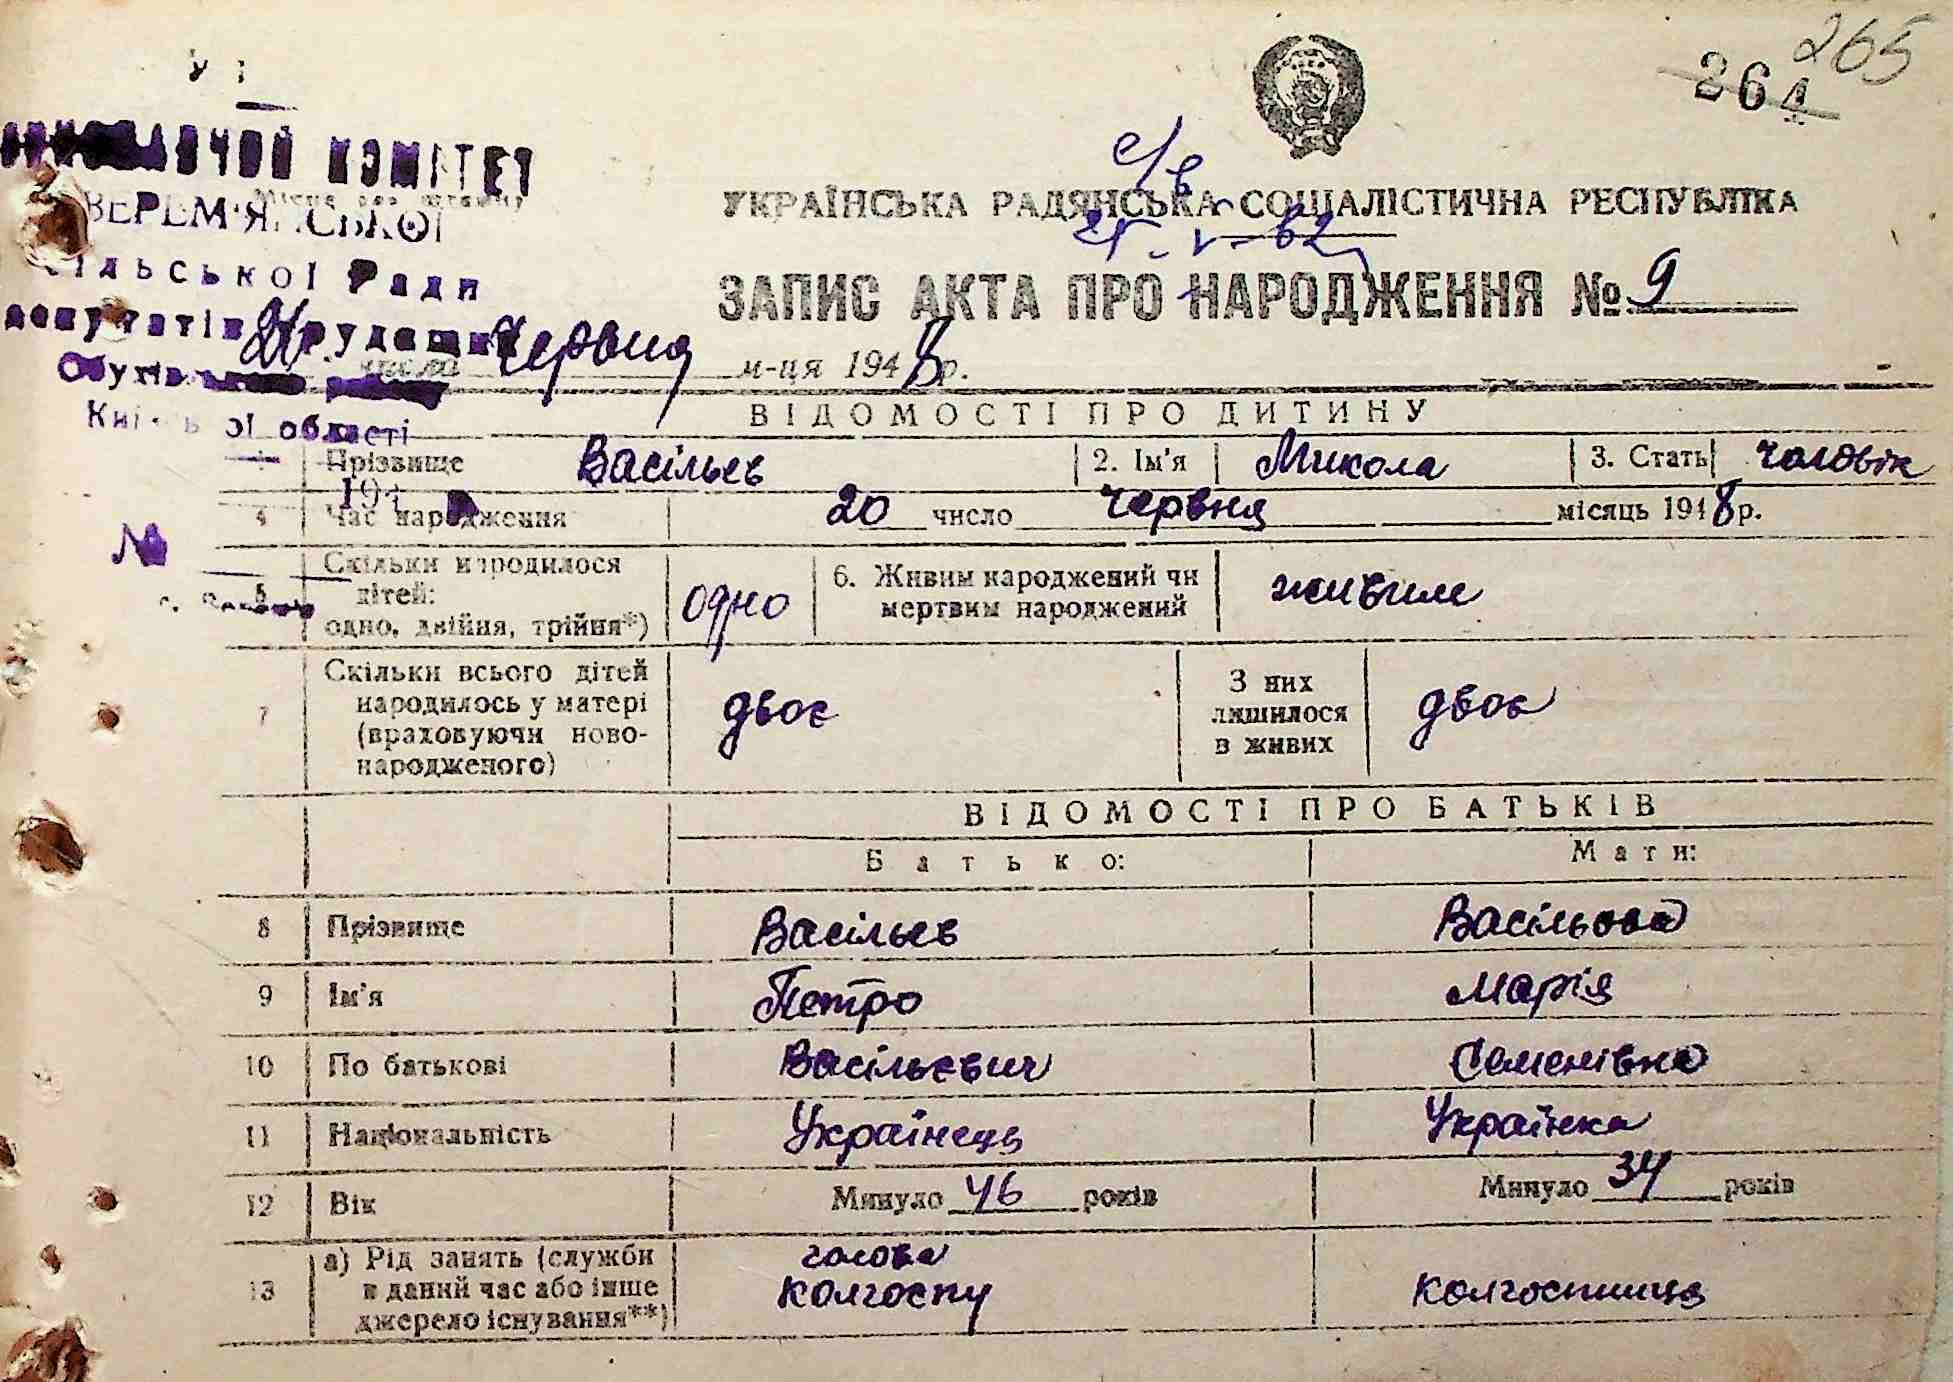 265
264
КОМІТЕТ
УКРАЇНСЬКА РАДЯНСЬКА СОЦІАЛІСТИЧНА РЕСПУБЛІКА
с/в
Ради
ЗАПИС АКТА ПРО НАРОДЖЕННЯ № 9
числа червня м-ця 1948 р.
області
ВІДОМОСТІ ПРО ДИТИНУ
Прізвище Васільєв 2. Ім'я Микола 3. Стать чоловік
194
4 Час народження 20 число червня місяць 1948 р.
№
5 Скільки народилося дітей: одно, двійня, трійня*) одно 6. Живим народжений чи мертвим народжений живим
7 Скільки всього дітей народилось у матері (враховуючи ново-народженого) двоє З них лишилося в живих двоє
ВІДОМОСТІ ПРО БАТЬКІВ
Батько: Мати:
8 Прізвище Васільєв Васільєва
9 Ім'я Петро Марія
10 По батькові Васільєвич Семенівна
11 Національність Українець Українка
12 Вік Минуло 46 років Минуло 34 років
13 а) Рід занять (служби в даний час або інше джерело існування**) голова колгоспу колгоспниця